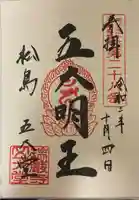 奉拝
令和二年
十月四日
五大明王
松島 五大堂